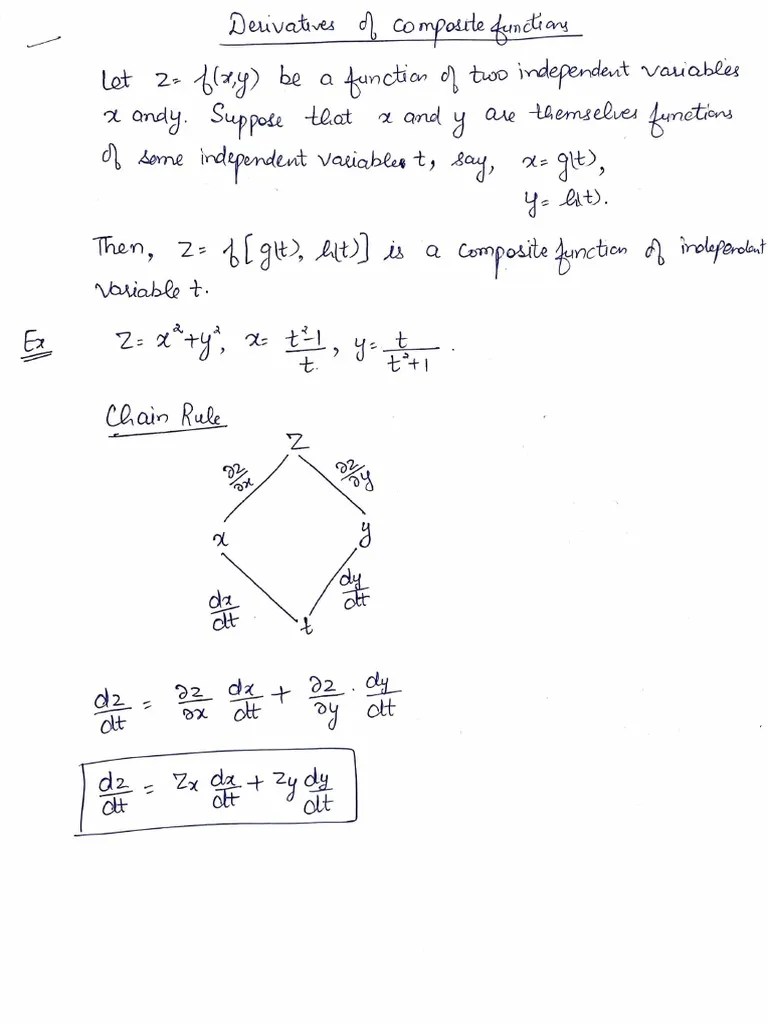 Derivatives of composite functions
Let z = f(x,y) be a function of two independent variables
x and y. Suppose that x and y are themselves functions
of some independent variables t, say, x = g(t),
y = h(t).
Then, z = f[g(t), h(t)] is a composite function of independent
variable t.
Ex z = x²+y², x = (t²-1)/t, y = t/(t²+1).
Chain Rule
z
∂z/∂x ∂z/∂y
x y
dx/dt dy/dt
t
dz/dt = ∂z/∂x dx/dt + ∂z/∂y · dy/dt
dz/dt = zx dx/dt + zy dy/dt